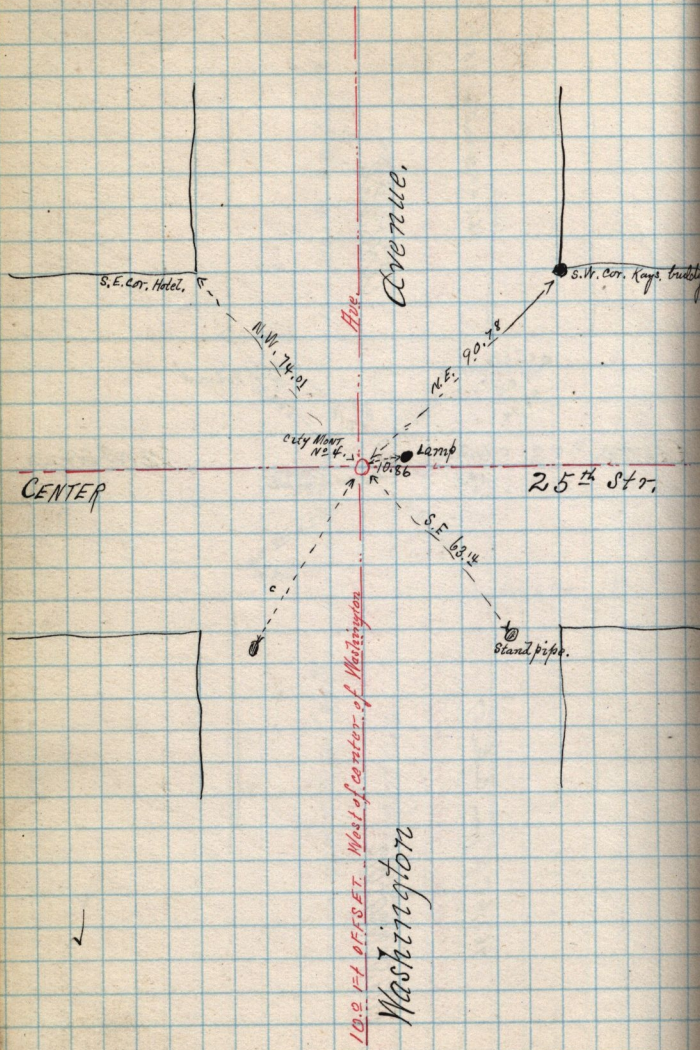 Avenue.
S.E. cor. Hotel.
S.W. Cor. Kays. buildg
Ave.
N.W. 74.01
N.E. 90.78
City Mont.
No 4.
Lamp
10.86
CENTER
25th Str.
S.E 63.14
c
Stand pipe.
10.0 Ft OFFSET. West of center of Washington
Washington